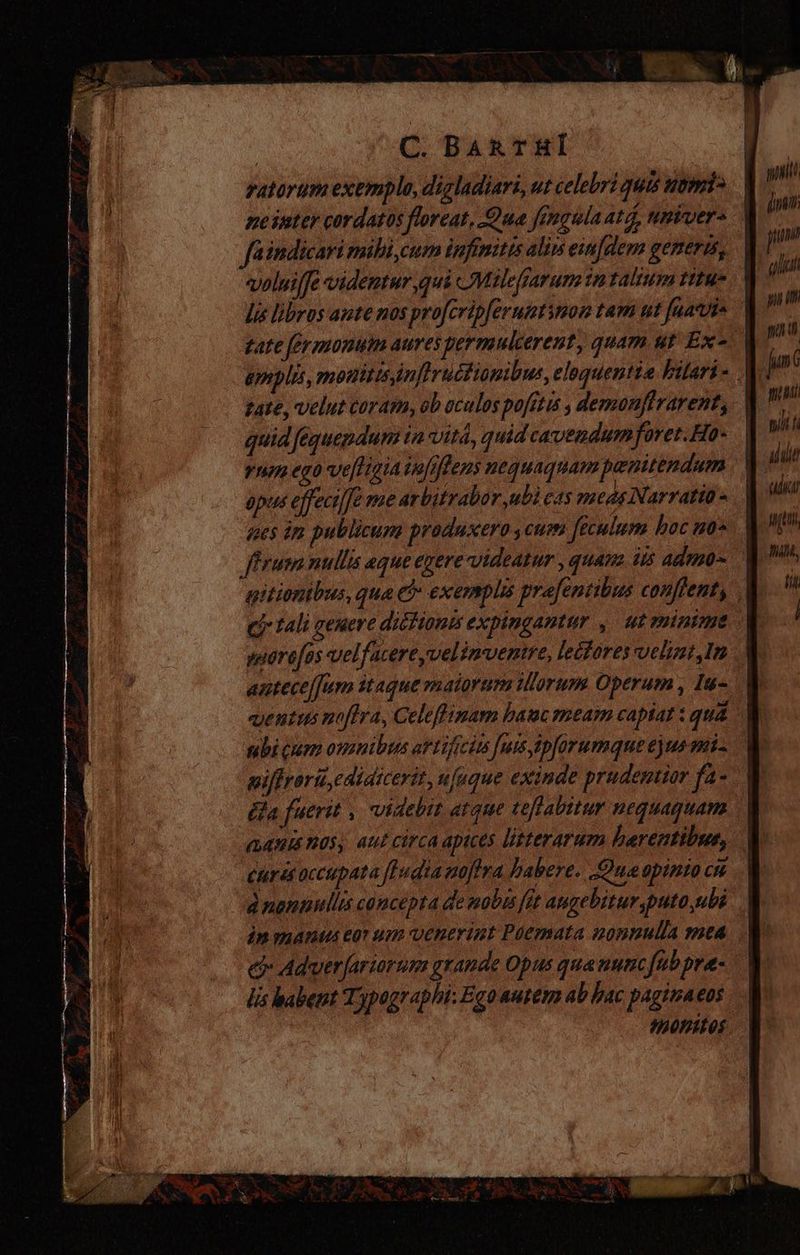 C. BARTHI
ratorum exemplo, digladiari, ut celebri quis nomi-
ne inter cordatos floreat. Quæ singula atq, univer-
sa indicari mihi, cum infinitis aliis eiusdem generis,
voluisse videntur, qui Milesiarum in talium titu-
lis libros ante nos proscripserunt: non tam ut suavi-
tate sermonum aures permulcerent, quam ut Ex-
emplis, monitis, instructionibus, eloquentiæ hilari-
tate, velut coram, ob oculos positis, demonstrarent,
quid sequendum in vitâ, quid cavendum foret. Ho-
rum ego vestigia insistens nequaquam pænitendum
opus effecisse me arbitrabor, ubi eas meas Narratio-
nes in publicum produxero, cum seculum hoc no-
strum nullis æque egere videatur, quam iis admo-
nitionibus, quæ & exemplis præsentibus constent,
& tali genere dictionis expingantur, ut minime
morosos vel facere, vel invenire, lectores velint. In
antecessum itaque maiorum illorum Operum, Iu-
ventus nostra, Celestinam hanc meam capiat: quâ
ubi cum omnibus artificiis suis, ipsorumque ejus mi-
nistrorũ, edidicerit, usque exinde prudentior fa-
cta fuerit, videbit atque testabitur nequaquam
inanis nos, aut circa apices litterarum hærentibus,
curis occupata studia nostra habere. Quæ opinio cũ
à nonnullis concepta de nobis sit augebitur, puto, ubi
in manus eorum venerint Poemata nonnulla mea
& Adversariorum grande Opus quæ nunc sub præ-
lis habent Typographi: Ego autem ab hac pagina eos
monitos